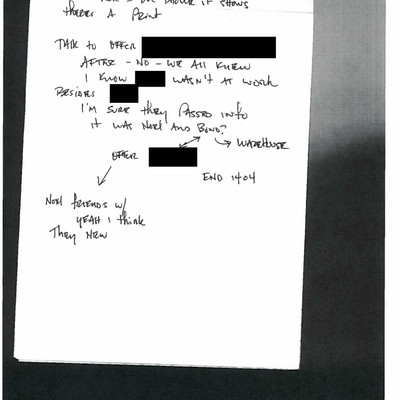 it shows
there's A Print
Talk to offer
After - No - we all knew
I know wasn't at work
Besides
I'm sure they passed info
it was Noel And Bond?
offer → Warehouse
END 1404
Noel friends w/
YEAH I think
They New